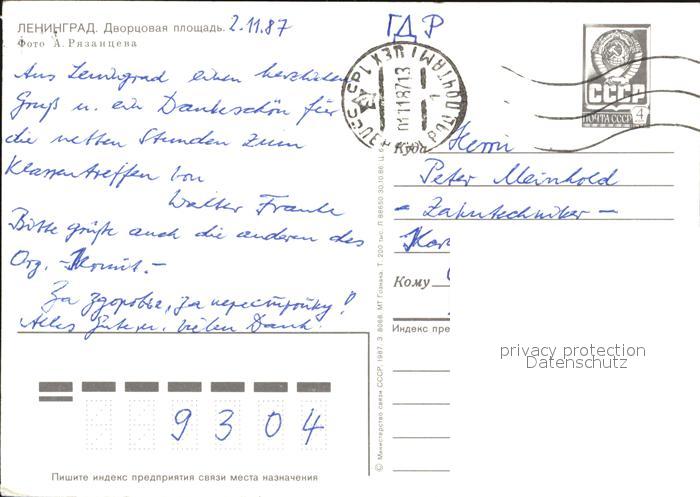 ЛЕНИНГРАД. Дворцовая площадь. 2.11.87
Фото А. Рязанцева
ГДР
Aus Leningrad einen herzlichen
Gruß u. ein Dankeschön für
die netten Stunden zum
Klassentreffen von
Walter Franke
Bitte grüße auch die anderen des
Org.-Komit.-
За здоровье, за перестройку!
Alles Gute u. vielen Dank.
9304
Пишите индекс предприятия связи места назначения
© Министерство связи СССР. 1987. З. 8098. МТ Гознака. Т. 200 тыс. Л 88650 30.10.86 Ц. 6
СССР
ПОЧТА СССР 4
01118713
Куда
Herrn
Peter Meinhold
- Zahntechniker -
Кому
Индекс пре
privacy protection
Datenschutz